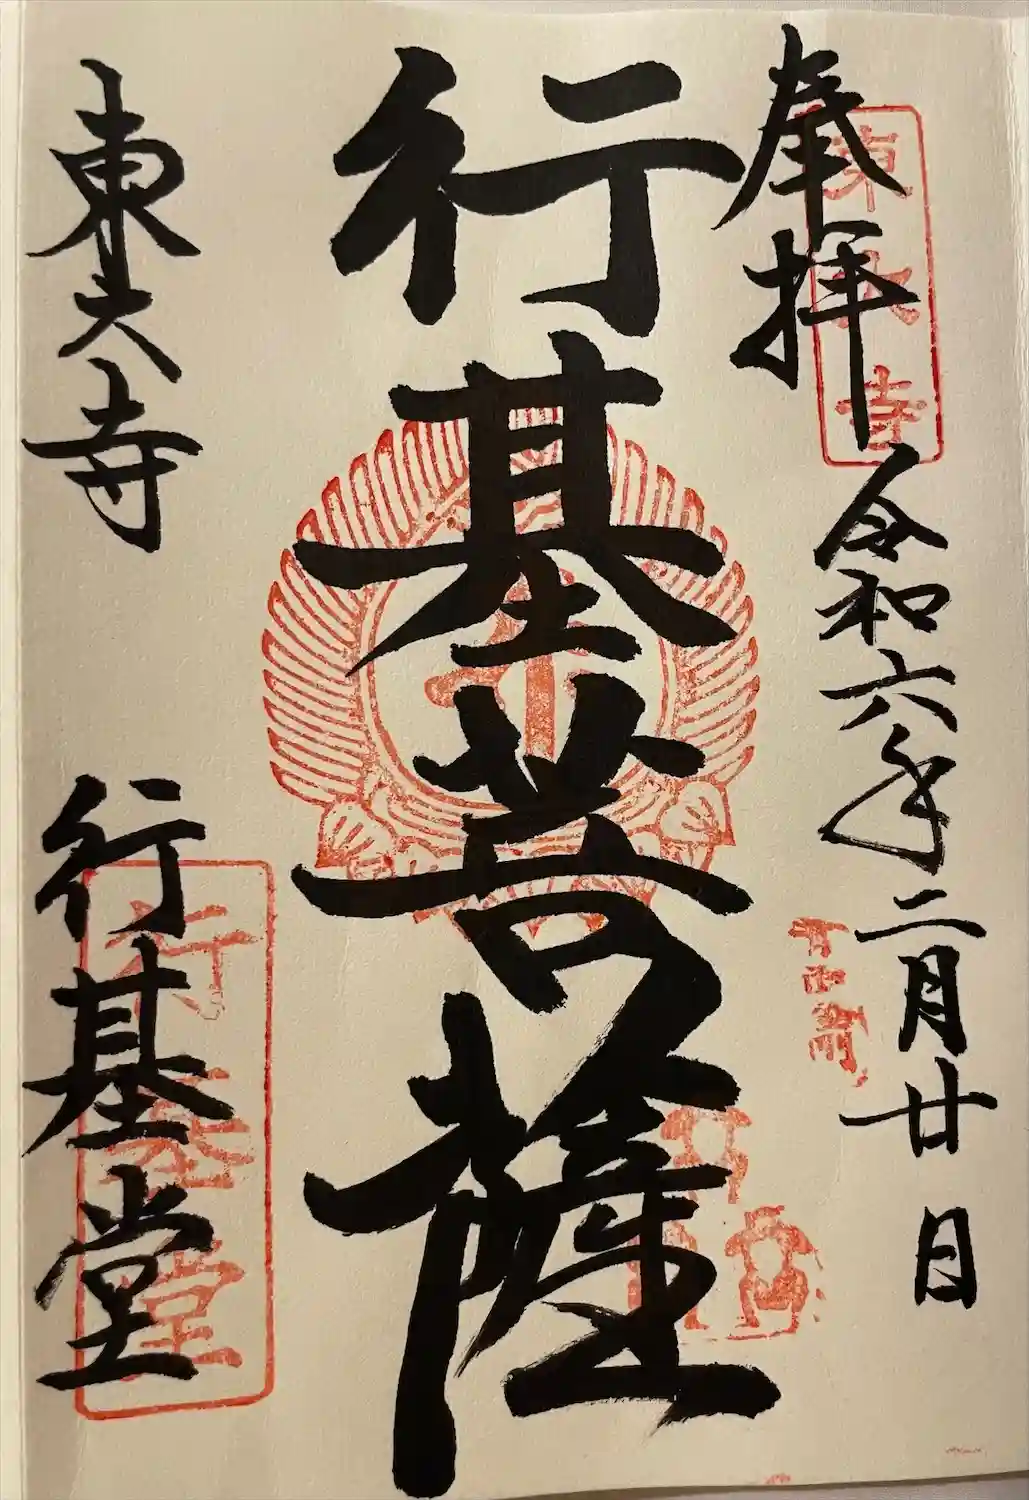 奉拝
東大寺
令和六年二月廿日
行基菩薩
東大寺
行基堂
行基堂